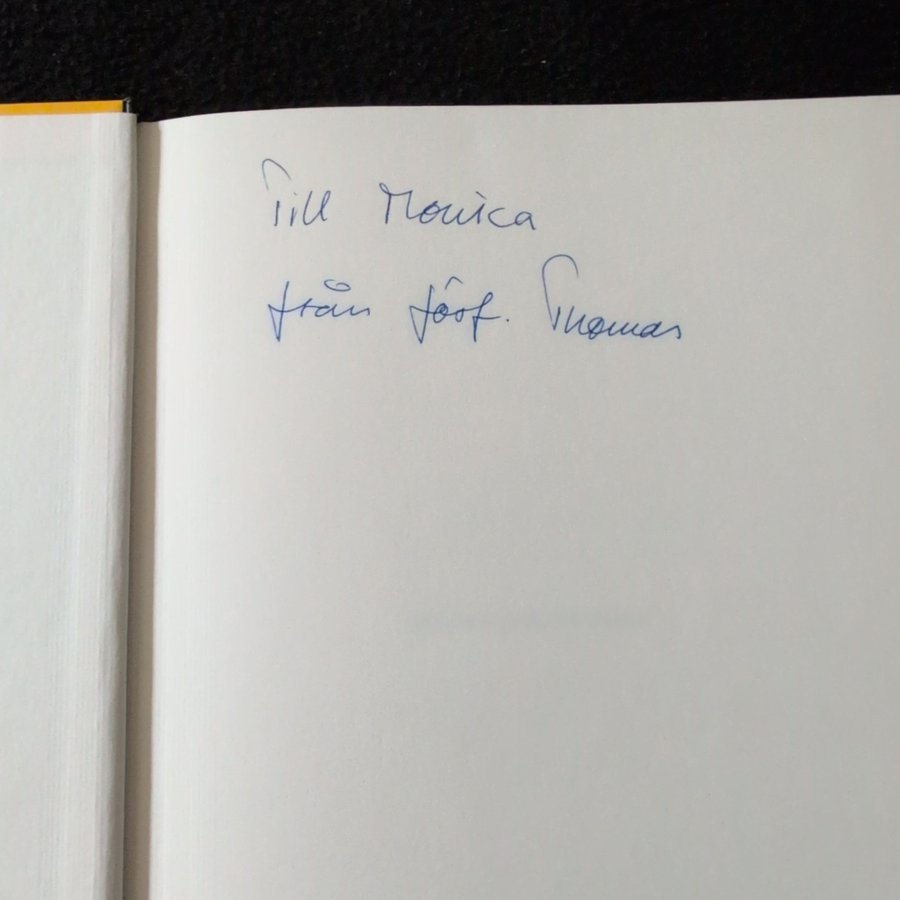 Till Monica
från förf. Thomas